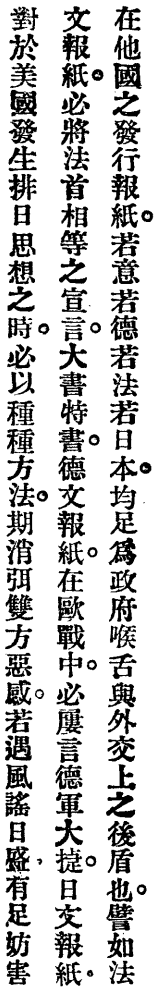 在他國之發行報紙。若意若德若法若日本。均足爲政府喉舌與外交上之後盾也。譬如法
文報紙。必將法首相等之宣言。大書特書。德文報紙。在歐戰中。必屢言德軍大捷。日文報紙。
對於美國發生排日思想之時。必以種種方法。期消弭雙方惡感。若遇風謠日盛、有足妨害